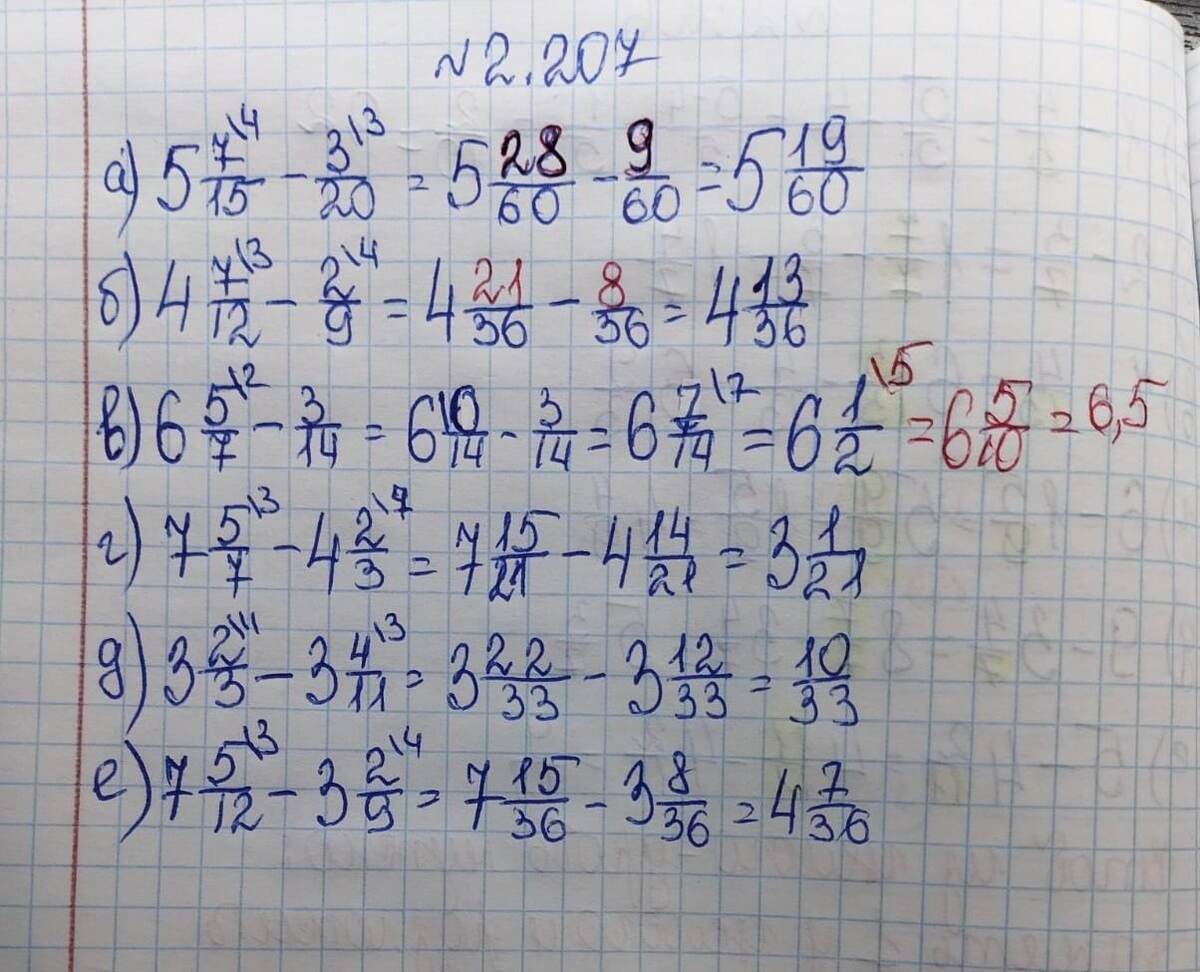 №2.207
а) 5 7/15\4 - 3/20\3 = 5 28/60 - 9/60 = 5 19/60
б) 4 7/12\3 - 2/9\4 = 4 21/36 - 8/36 = 4 13/36
в) 6 5/7\2 - 3/14 = 6 10/14 - 3/14 = 6 7/14\7 = 6 1/2\5 = 6 5/10 = 6,5
г) 7 5/7\3 - 4 2/3\7 = 7 15/21 - 4 14/21 = 3 1/21
д) 3 2/3\11 - 3 4/11\3 = 3 22/33 - 3 12/33 = 10/33
е) 7 5/12\3 - 3 2/9\4 = 7 15/36 - 3 8/36 = 4 7/36